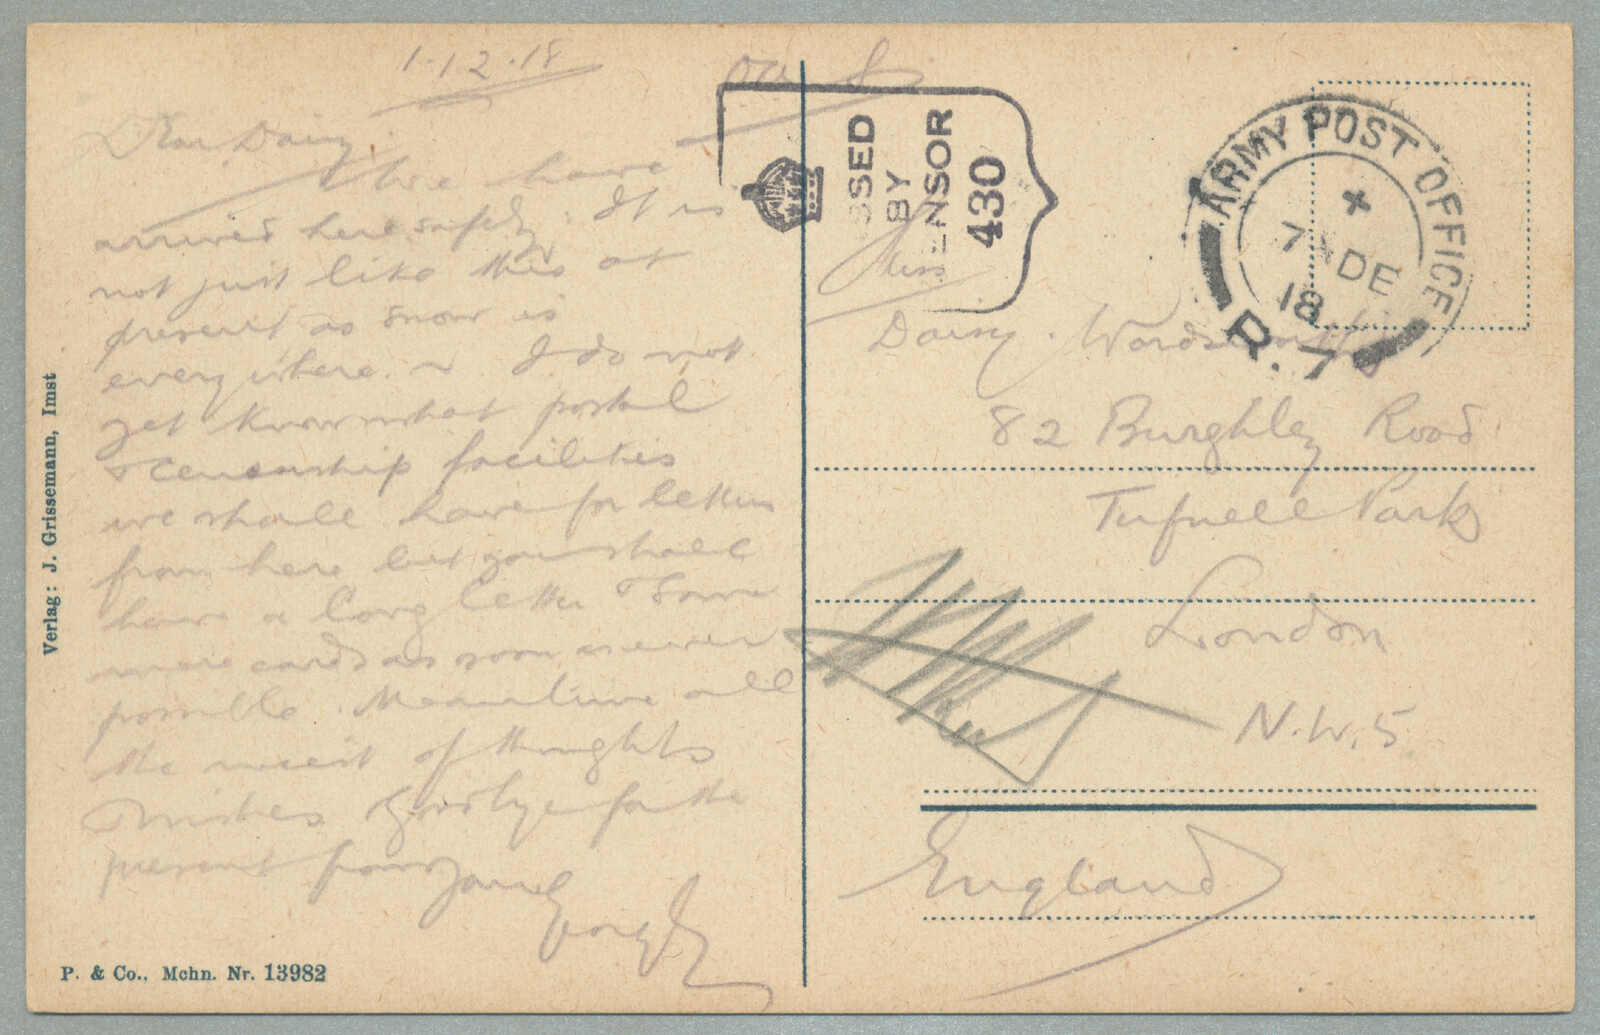 1.12.18
Dear Daisy.
We have
arrived here safely. It is
not just like this at
present as snow is
everywhere. ~ I do not
yet know what postal
& censorship facilities
we shall have for letters
from here but you shall
have a long letter & some
more cards as soon as ever
possible. Meantime all
the nicest of thoughts
& wishes Goodbye for the
present from
OAS
SSED
BY
ENSOR
430
ARMY POST OFFICE
X
7 DE
18
R.7
Miss
Daisy. Wordsworth
82 Burghley Road
Tufnell Park
London
N.W.5
England
Verlag: J. Grissemann, Imst
P. & Co., Mchn. Nr. 13982